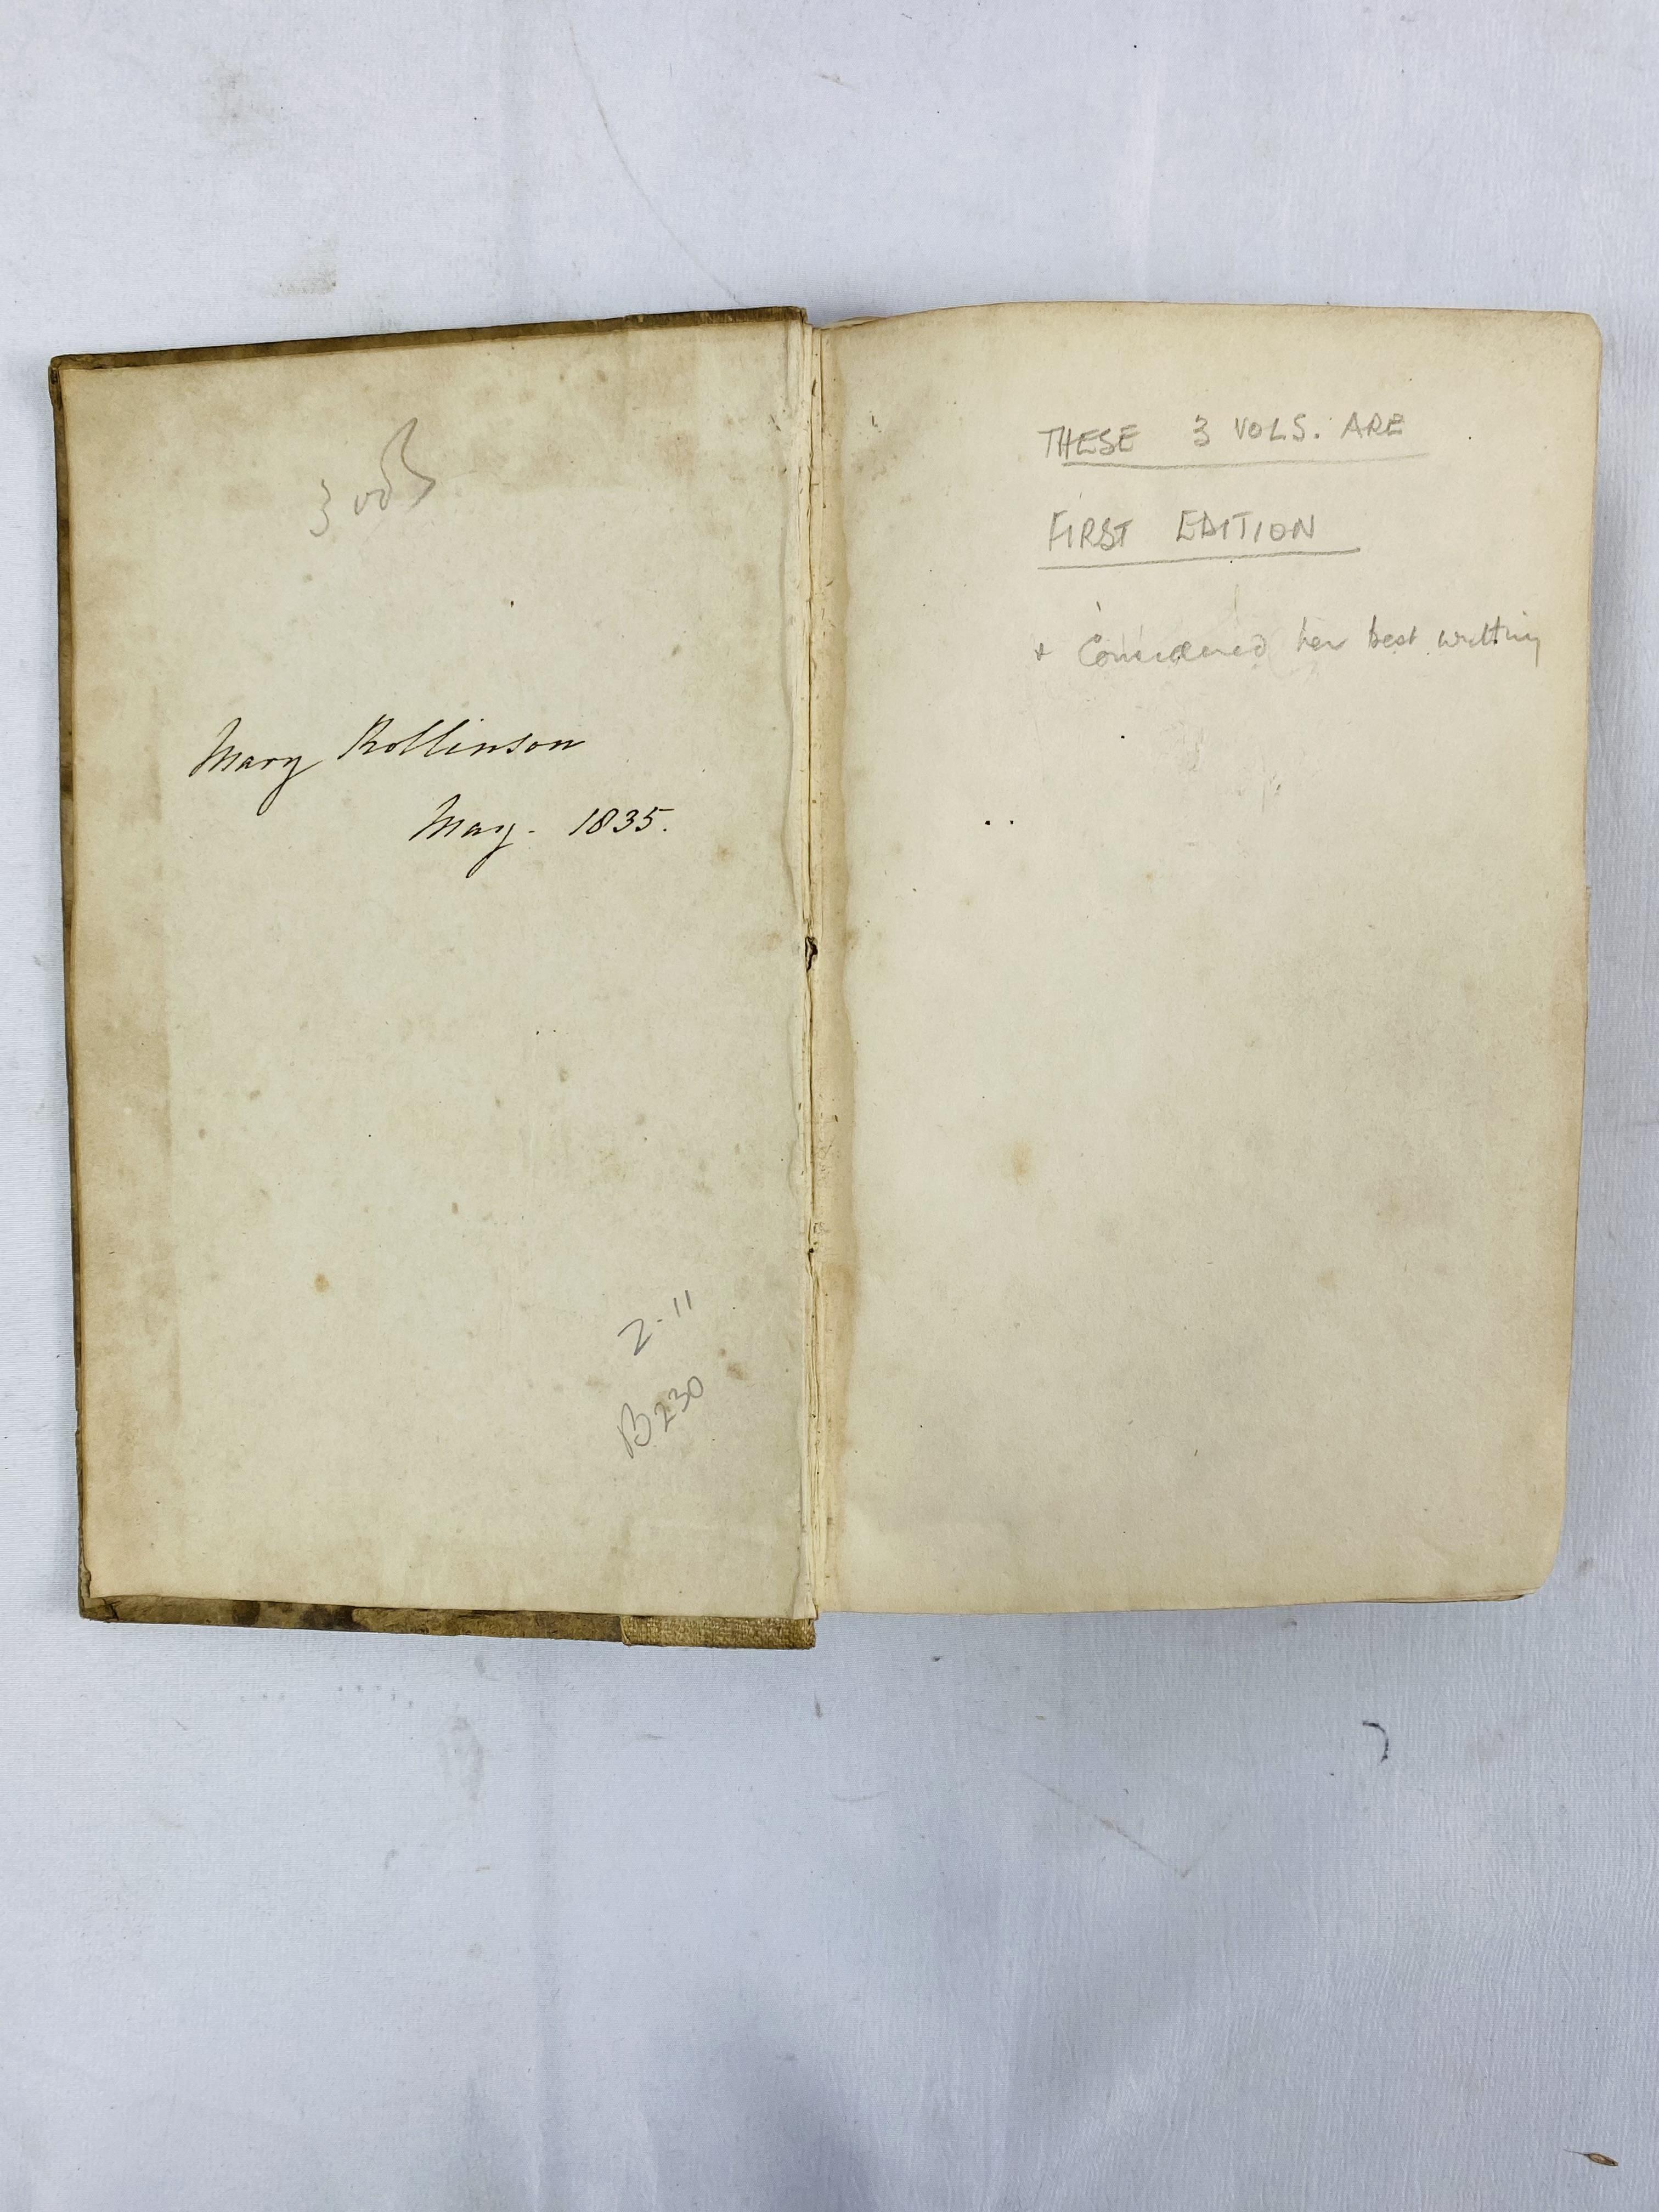 3 vols
Mary Rollinson
May. 1835.
2-11
B230
THESE 3 VOLS. ARE
FIRST EDITION
+ Considered her best writing